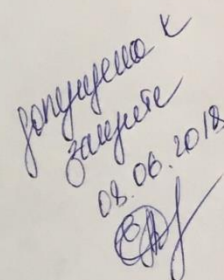 допущена к
защите
08.06.2018